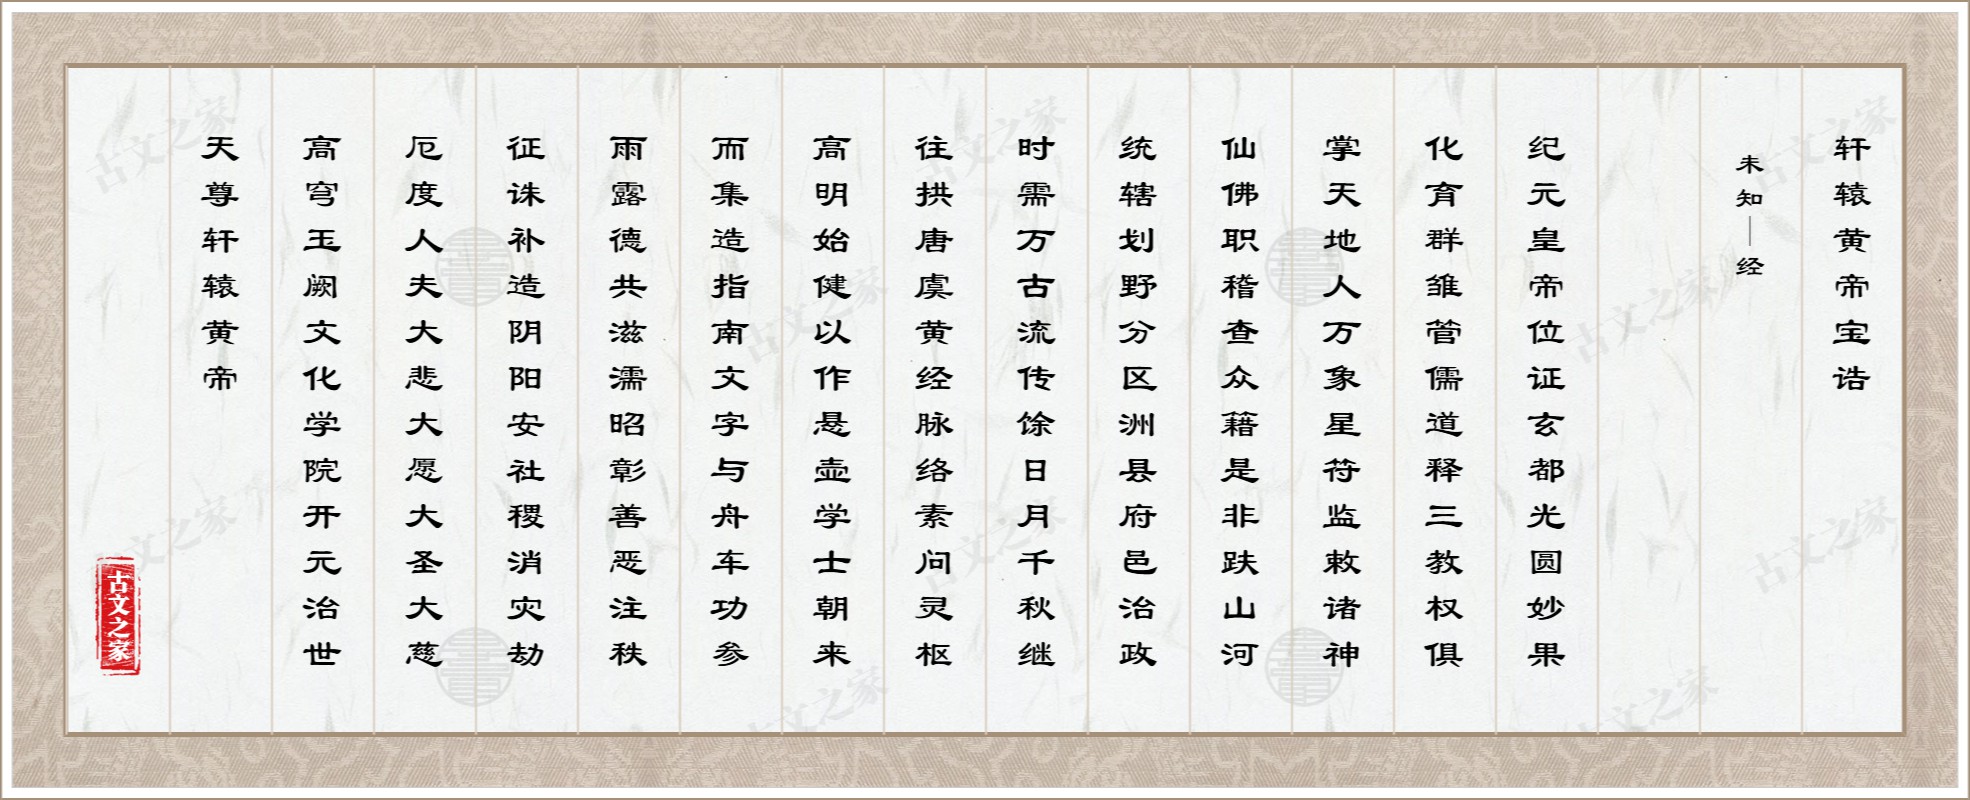 轩辕黄帝宝诰
未知—经
纪元皇帝位证玄都光圆妙果
化育群雏菅儒道释三教权俱
掌天地人万象星符监敕诸神
仙佛职稽查众藉是非跌山河
统辖划野分区洲县府邑治政
时需万古流传馀日月千秋继
往拱唐虞黄经脉络素问灵枢
高明始健以作悬壶学士朝来
而集造指南文字与舟车功参
雨露德共滋濡昭彰善恶注秩
征诛补造阴阳安社稷消灾劫
厄度人夫大悲大愿大圣大慈
高穹玉阙文化学院开元治世
天尊轩辕黄帝
古文之家